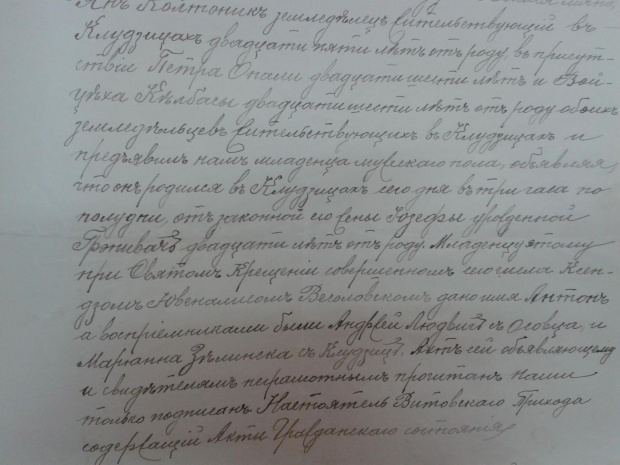 Янъ Колтоникъ земледѣлецъ жительствующій въ
Клудзицахъ двадцати пяти лѣтъ отъ роду, въ присут-
ствіи Петра Опали двадцати шести лѣтъ и Вой-
цѣха Кѣлбасы двадцати шести лѣтъ отъ роду обоихъ
земледѣльцевъ жительствующихъ въ Клудзицахъ и
предъявилъ намъ младенца мужескаго пола, объявляя,
что онъ родился въ Клудзицахъ сего дня въ три часа по
полудни, отъ законной его жены Іозефы урожденной
двадцати лѣтъ отъ роду. Младенцу этому
при Святомъ Крещеніи совершенномъ сего числа Ксен-
дзомъ Ювеналисомъ Веголовскомъ дано имя Антонъ
а воспріемниками были Андрей Людвигъ съ Осовца, и
Маріанна Зѣлинска съ Клудзицъ. Актъ сей объявляющему
и свидѣтелямъ неграмотнымъ прочитанъ нами
только подписанъ Настоятель Витовскаго Прихода
содержащій Акты Гражданскаго состоянія